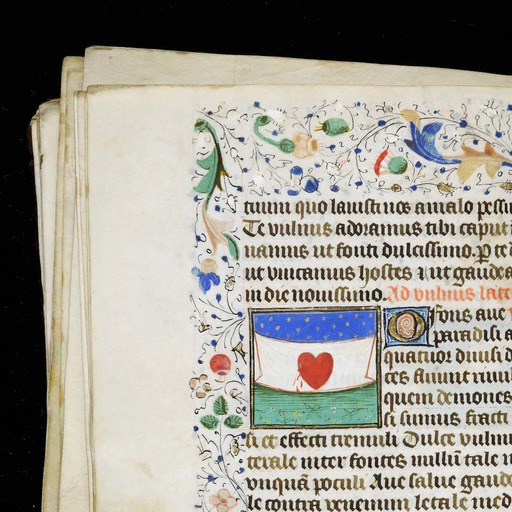 tuum quo lauisti nos a malo pessi
Te vulnus adoramus tibi caput i
namus ut fonti dulcissimo. p te d
ut vincamus hostes et ut gaudea
in die nouissimo. Ad vulnus late
fons aue
paradisi a
quatuor diuisi d
tes fluunt
quem demones
si sumus fracti
si et effecti tremuli Dulce vulnu
terale inter fontes nullū tale n
vnquā poculi Aue salue gaude
le contra venenum letale med